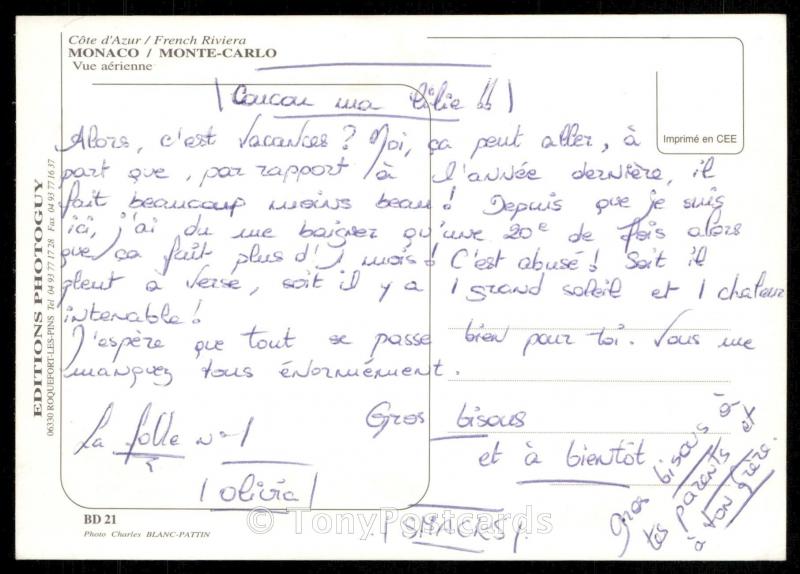 Côte d'Azur / French Riviera
MONACO / MONTE-CARLO
Vue aérienne
Imprimé en CEE
Coucou ma lilie !!
Alors, c'est vacances ? Moi, ça peut aller, à
part que, par rapport à l'année dernière, il
fait beaucoup moins beau ! Depuis que je suis
ici, j'ai du me baigner qu'une 20e de fois alors
que ça fait plus d'1 mois ! C'est abusé ! Soit il
pleut à verse, soit il y a 1 grand soleil et 1 chaleur
intenable !
J'espère que tout se passe bien pour toi. Vous me
manquez tous énormément.
Gros bisous
et à bientôt
La folle n°1
(olivia)
Gros bisous à
tes parents et
à ton frère.
EDITIONS PHOTOGUY
06330 ROQUEFORT-LES-PINS Tél 04 93 77 17 28 Fax 04 93 77 16 37
BD 21
Photo Charles BLANC-PATTIN
© TonyPostcards